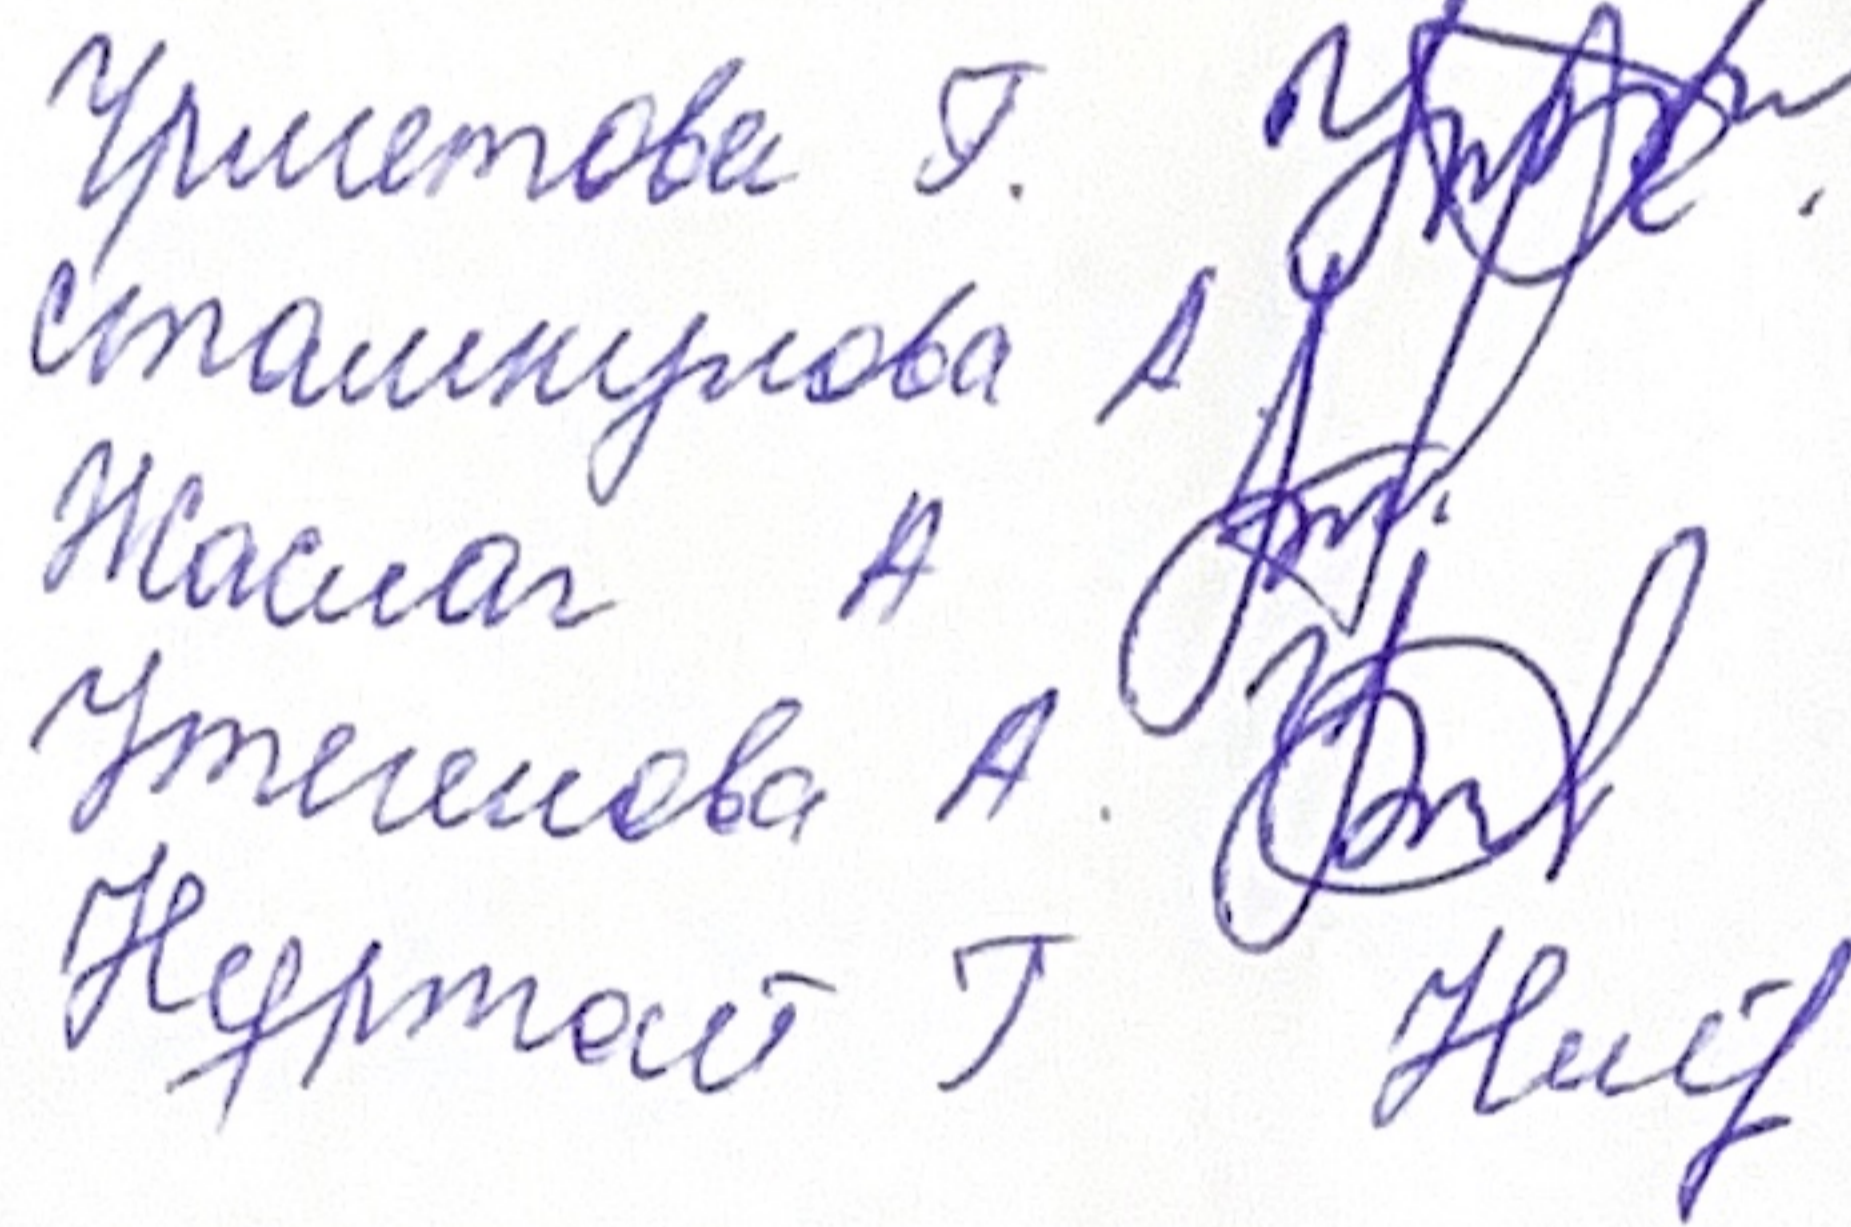 Урметова Г.
Сташкулова А
Жаслан А
Утегенова А.
Нұртай Г